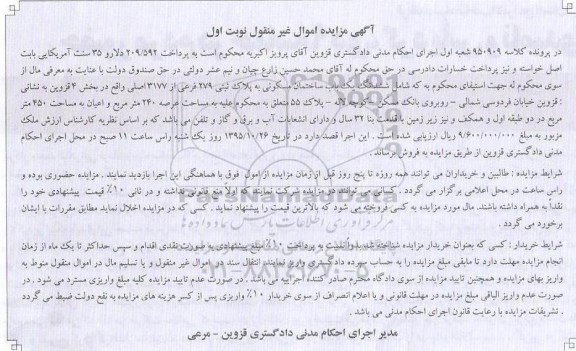 آگهی مزایده اموال غیر منقول نوبت اول
در پرونده کلاسه ۹۵۰۹۰۹ شعبه اول اجرای احکام مدنی دادگستری قزوین آقای پرویز اکبریه محکوم است به پرداخت ۲۰۹/۵۹۲ دلارو ۳۵ سنت آمریکایی بابت
اصل خواسته و نیز پرداخت خسارات دادرسی در حق محکوم له آقای محمد حسین زارع چیان و نیم عشر دولتی در حق صندوق دولت با عنایت به معرفی مال از
سوی محکوم له جهت استیفای محکوم به که شامل ششدانگ یکباب ساختمان مسکونی به پلاک ثبتی ۲۷۹ فرعی از ۳۱۷۷ اصلی واقع در بخش ۴ قزوین به نشانی
: قزوین خیابان فردوسی شمالی - روبروی بانک مسکن - کوچه لاله - پلاک ۵۵ متعلق به محکوم علیه به مساحت عرصه ۲۴۰ متر مربع و اعیان به مساحت ۴۵۰ متر
مربع در دو طبقه اول و همکف و نیز زیر زمین با قدمت بنا ۳۲ سال و دارای انشعابات آب و برق و گاز و تلفن می باشد که بر اساس نظریه کارشناس ارزش ملک
مزبور به مبلغ ۹/۶۰۰/۰۰۰/۰۰۰ ریال ارزیابی شده است . این اجرا قصد دارد در تاریخ ۱۳۹۵/۱۰/۲۶ روز یک شنبه راس ساعت ۱۱ صبح در محل اجرای احکام
مدنی دادگستری قزوین از طریق مزایده به فروش برساند .
شرایط مزایده : طالبین و خریداران می توانند همه روزه تا پنج روز قبل از زمان مزایده از اموال فوق با هماهنگی این اجرا بازدید نمایند . مزایده حضوری بوده و
راس ساعت در محل اعلامی برگزار می گردد . کسانی می توانند در مزایده شرکت نمایند که اولا منع قانونی نداشته و در ثانی ۱۰٪ قیمت پیشنهادی خود را
نقداً به همراه داشته باشند. مال مورد مزایده به کسی فروخته می شود که بالاترین قیمت را پیشنهاد نماید . کسی که در مزایده اخلال نماید مطابق مقررات با ایشان
برخورد می گردد .
شرایط خریدار : کسی که بعنوان خریدار مزایده شناخته شد بدوا نسبت به پرداخت ۱۰٪ مبلغ پیشنهادی به صورت نقدی اقدام و سپس حداکثر تا یک ماه از زمان
انجام مزایده مهلت دارد تا مابقی مبلغ مزایده را به حساب سپرده دادگستری واریز نمایند انتقال سند در اموال غیر منقول و یا تسلیم مال در اموال منقول منوط به
واریز بهای مزایده و همچنین تایید مزایده از سوی دادگاه محترم صادر کننده اجراییه می باشد . در صورت عدم تایید مزایده کلیه مبلغ واریزی مسترد می شود . در
صورت عدم واریز الباقی مبلغ مزایده در مهلت قانونی و یا اعلام انصراف از سوی خریدار ۱۰٪ واریزی پس از کسر هزینه های مزایده به نفع دولت ضبط می گردد
. تشریفات مزایده با رعایت قانون اجرای احکام مدنی می باشد .
مدیر اجرای احکام مدنی دادگستری قزوین - مرعی
ParsNamadData